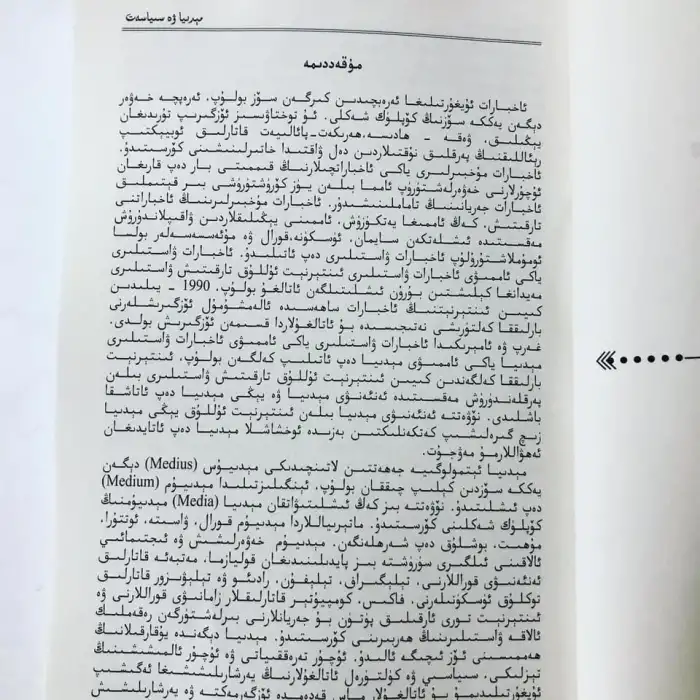 مېدىيا ۋە سىياسەت
مۇقەددىمە
ئاخبارات ئۇيغۇرتىلىغا ئەرەبچىدىن كىرگەن سۆز بولۇپ، ئەرەپچە خەۋەر
دېگەن يەككە سۆزنىڭ كۆپلۈك شەكلى. ئۇ توختاۋسىز ئۆزگىرىپ تۇرىدىغان
يېڭىلىق، ۋەقە - ھادىسە، ھەرىكەت-پائالىيەت قاتارلىق ئوبيېكتىپ
رېئاللىقنىڭ پەرقلىق نۇقتىلاردىن دەل ۋاقتىدا خاتىرلىنىشىنى كۆرسىتىدۇ.
ئاخبارات مۇخبىرلىرى ياكى ئاخباراتچىلارنىڭ قىممىتى بار دەپ قارىغان
ئۇچۇرلارنى خەۋەرلەشتۈرۈپ ئامما بىلەن يۈز كۆرۈشتۈرۈشى بىر قېتىملىق
ئاخبارات جەريانىنىڭ تاماملىنىشىدۇر. ئاخبارات مۇخبىرلىرىنىڭ ئاخباراتنى
تارقىتىش، كەڭ ئاممىغا يەتكۈزۈش، ئاممىنى يېڭىلىقلاردىن ۋاقىپلاندۇرۇش
مەقسىتىدە ئىشلەتكەن سايمان، ئۈسكۈنە،قورال ۋە مۇئەسسەسەلەر بولسا
ئومۇملاشتۇرۇلۇپ ئاخبارات ۋاستىلىرى دەپ ئاتىلىدۇ. ئاخبارات ۋاستىلىرى
ياكى ئاممىۋى ئاخبارات ۋاستىلىرى ئىنتېرنېت ئۇللۇق تارقىتىش ۋاستىلىرى
مەيدانغا كېلىشتىن بۇرۇن ئىشلىتىلگەن ئاتالغۇ بولۇپ، 1990 - يىلىدىن
كىيىن ئىنتېرنېتنىڭ ئاخبارات ساھەسىدە ئالەمشۇمۇل ئۆزگىرىشلەرنى
بارلىققا كەلتۈرىشى نەتىجىسىدە بۇ ئاتالغۇلاردا قىسمەن ئۆزگىرىش بولدى.
غەرپ ۋە ئامېرىكىدا ئاخبارات ۋاستىلىرى ياكى ئاممىۋى ئاخبارات ۋاستىلىرى
مېدىيا ياكى ئاممىۋى مېدىيا دەپ ئاتىلىپ كەلگەن بولۇپ، ئىنتېرنېت
بارلىققا كەلگەندىن كىيىن ئىنتېرنېت ئۇللۇق تارقىتىش ۋاستىلىرى بىلەن
پەرقلەندۈرۈش مەقسىتىدە ئەنئەنىۋى مېدىيا ۋە يېڭى مېدىيا دەپ ئاتاشقا
باشلىدى. نۆۋەتتە ئەنئەنىۋى مېدىيا بىلەن ئىنتېرنېت ئۇللۇق يېڭى مېدىيا
زىچ گىرەلىشىپ كەتكەنلىكتىن بەزىدە ئوخشاشلا مېدىيا دەپ ئاتايدىغان
ئەھۋاللارمۇ مەۋجۇت.
مېدىيا ئېتىمولوگىيە جەھەتتىن لاتىنچىدىكى مېدىيۇس (Medius) دېگەن
يەككە سۆزدىن كېلىپ چىققان بولۇپ، ئىنگىلىزتىلىدا مېدىيۇم (Medium)
دەپ ئىشلىتىدۇ. نۆۋەتتە بىز كەڭ ئىشلىتىۋاتقان مېدىيا (Media) مېدىيۇمنىڭ
كۆپلۈك شەكلىنى كۆرسىتىدۇ. ماتېرىياللاردا مېدىيۇم قورال، ۋاسىتە، ئوتتۇرا،
مۇھىت، بوشلۇق دەپ شەرھلەنگەن. مېدىيۇم خەۋەرلىشىش ۋە ئىجتىمائىي
ئالاقىنى ئىلگىرى سۈرۈشتە بىز پايدىلىنىدىغان قوليازما، مەتبەئە قاتارلىق
ئەنئەنىۋى قوراللارنى، تېلېگىراق، تېلېفۇن، رادىئو ۋە تېلېۋىزور قاتارلىق
توكلۇق ئۈسكۈنىلەرنى، فاكىس، كومپيۇتېر قاتارلىقلار زامانىۋى قوراللارنى ۋە
ئىنتېرنېت تورى ئارقىلىق پۈتۈن بۇ جەريانلارنى بىرلەشتۈرگەن رەقەملىك
ئالاقە ۋاستىلىرىنىڭ ھەربىرىنى كۆرسىتىدۇ. مېدىيا دېگەندە يۇقارقىلارنىڭ
ھەممىسىنى ئۆز ئىچىگە ئالىدۇ. ئۇچۇر تەرەققىياتى ۋە ئۇچۇر ئالمىشىشنىڭ
تېزلىكى، سىياسىي ۋە كۇلتۇرەل ئاتالغۇلارنىڭ يەرشارىلىشىشىغا ئەگىشىپ